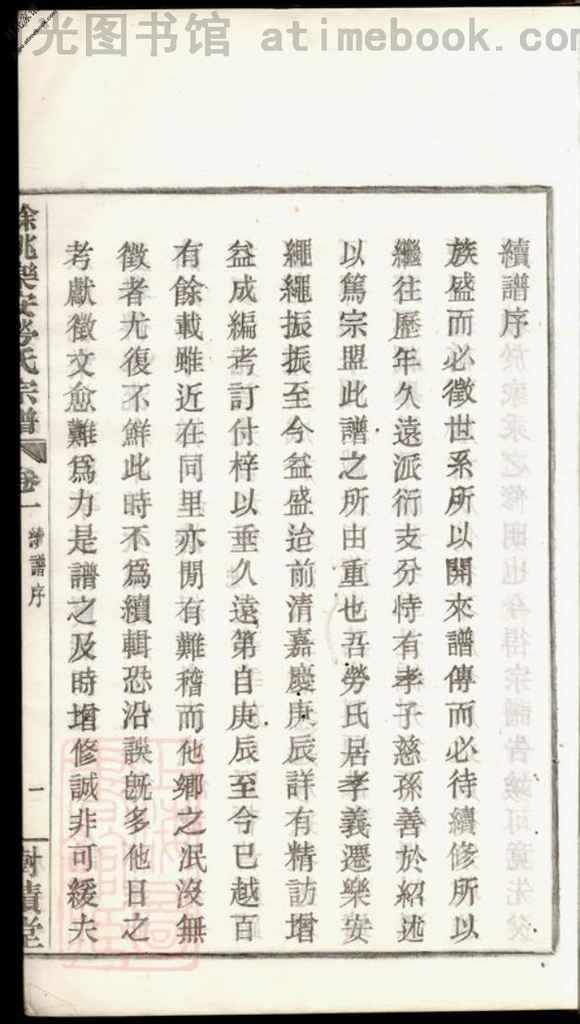 光图书馆 atimebook.com
續譜序
族盛而必徵世系所以開來譜傳而必待續修所以
繼往歷年久遠派衍支分恃有孝子慈孫善於紹述
以篤宗盟此譜之所由重也吾勞氏居孝義遷樂安
繩繩振振至今益盛迨前清嘉慶庚辰詳有精訪增
益成編考訂付梓以垂久遠第自庚辰至今已越百
有餘載雖近在同里亦閒有難稽而他鄉之泯沒無
徵者尤復不鮮此時不爲續輯恐沿誤旣多他日之
考獻徵文愈難爲力是譜之及時增修誠非可緩夫
餘姚樂安勞氏宗譜 卷一 續譜序 一